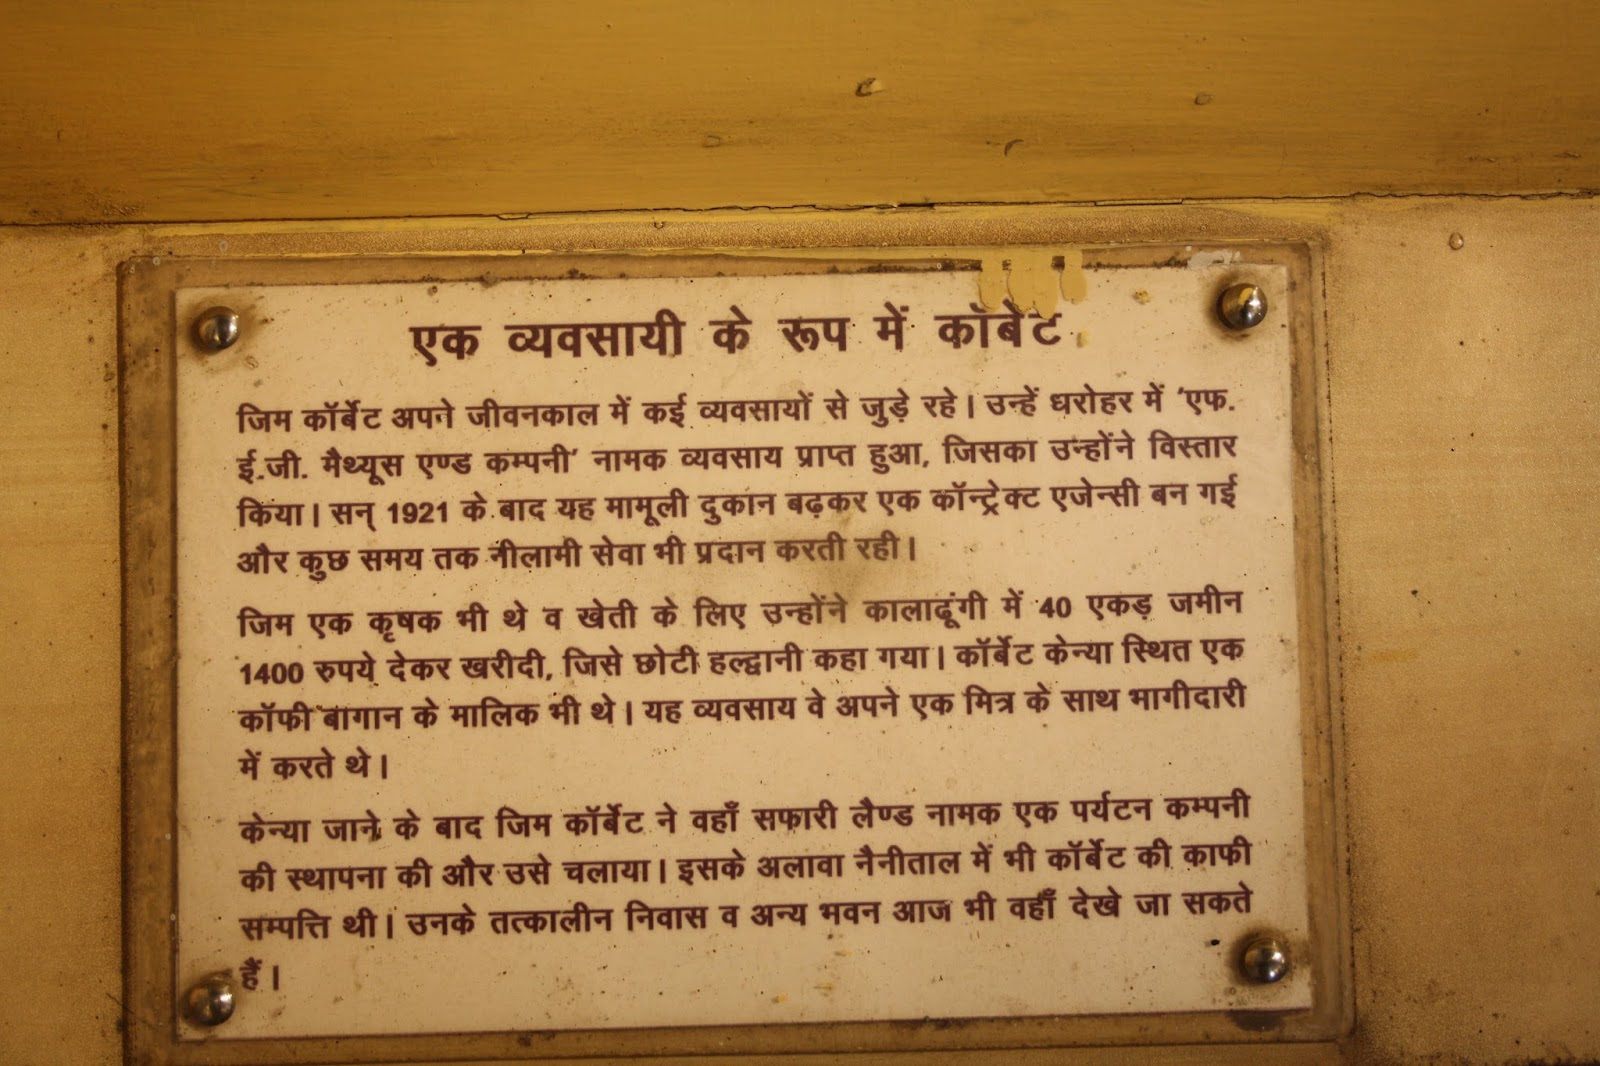 एक व्यवसायी के रूप में कॉर्बेट
जिम कॉर्बेट अपने जीवनकाल में कई व्यवसायों से जुड़े रहे। उन्हें धरोहर में 'एफ.
ई.जी. मैथ्यूस एण्ड कम्पनी' नामक व्यवसाय प्राप्त हुआ, जिसका उन्होंने विस्तार
किया। सन् 1921 के बाद यह मामूली दुकान बढ़कर एक कॉन्ट्रेक्ट एजेन्सी बन गई
और कुछ समय तक नीलामी सेवा भी प्रदान करती रही।
जिम एक कृषक भी थे व खेती के लिए उन्होंने कालाढूंगी में 40 एकड़ जमीन
1400 रुपये देकर खरीदी, जिसे छोटी हल्द्वानी कहा गया। कॉर्बेट केन्या स्थित एक
कॉफी बागान के मालिक भी थे। यह व्यवसाय वे अपने एक मित्र के साथ भागीदारी
में करते थे।
केन्या जाने के बाद जिम कॉर्बेट ने वहाँ सफारी लैण्ड नामक एक पर्यटन कम्पनी
की स्थापना की और उसे चलाया। इसके अलावा नैनीताल में भी कॉर्बेट की काफी
सम्पत्ति थी। उनके तत्कालीन निवास व अन्य भवन आज भी वहाँ देखे जा सकते
हैं।